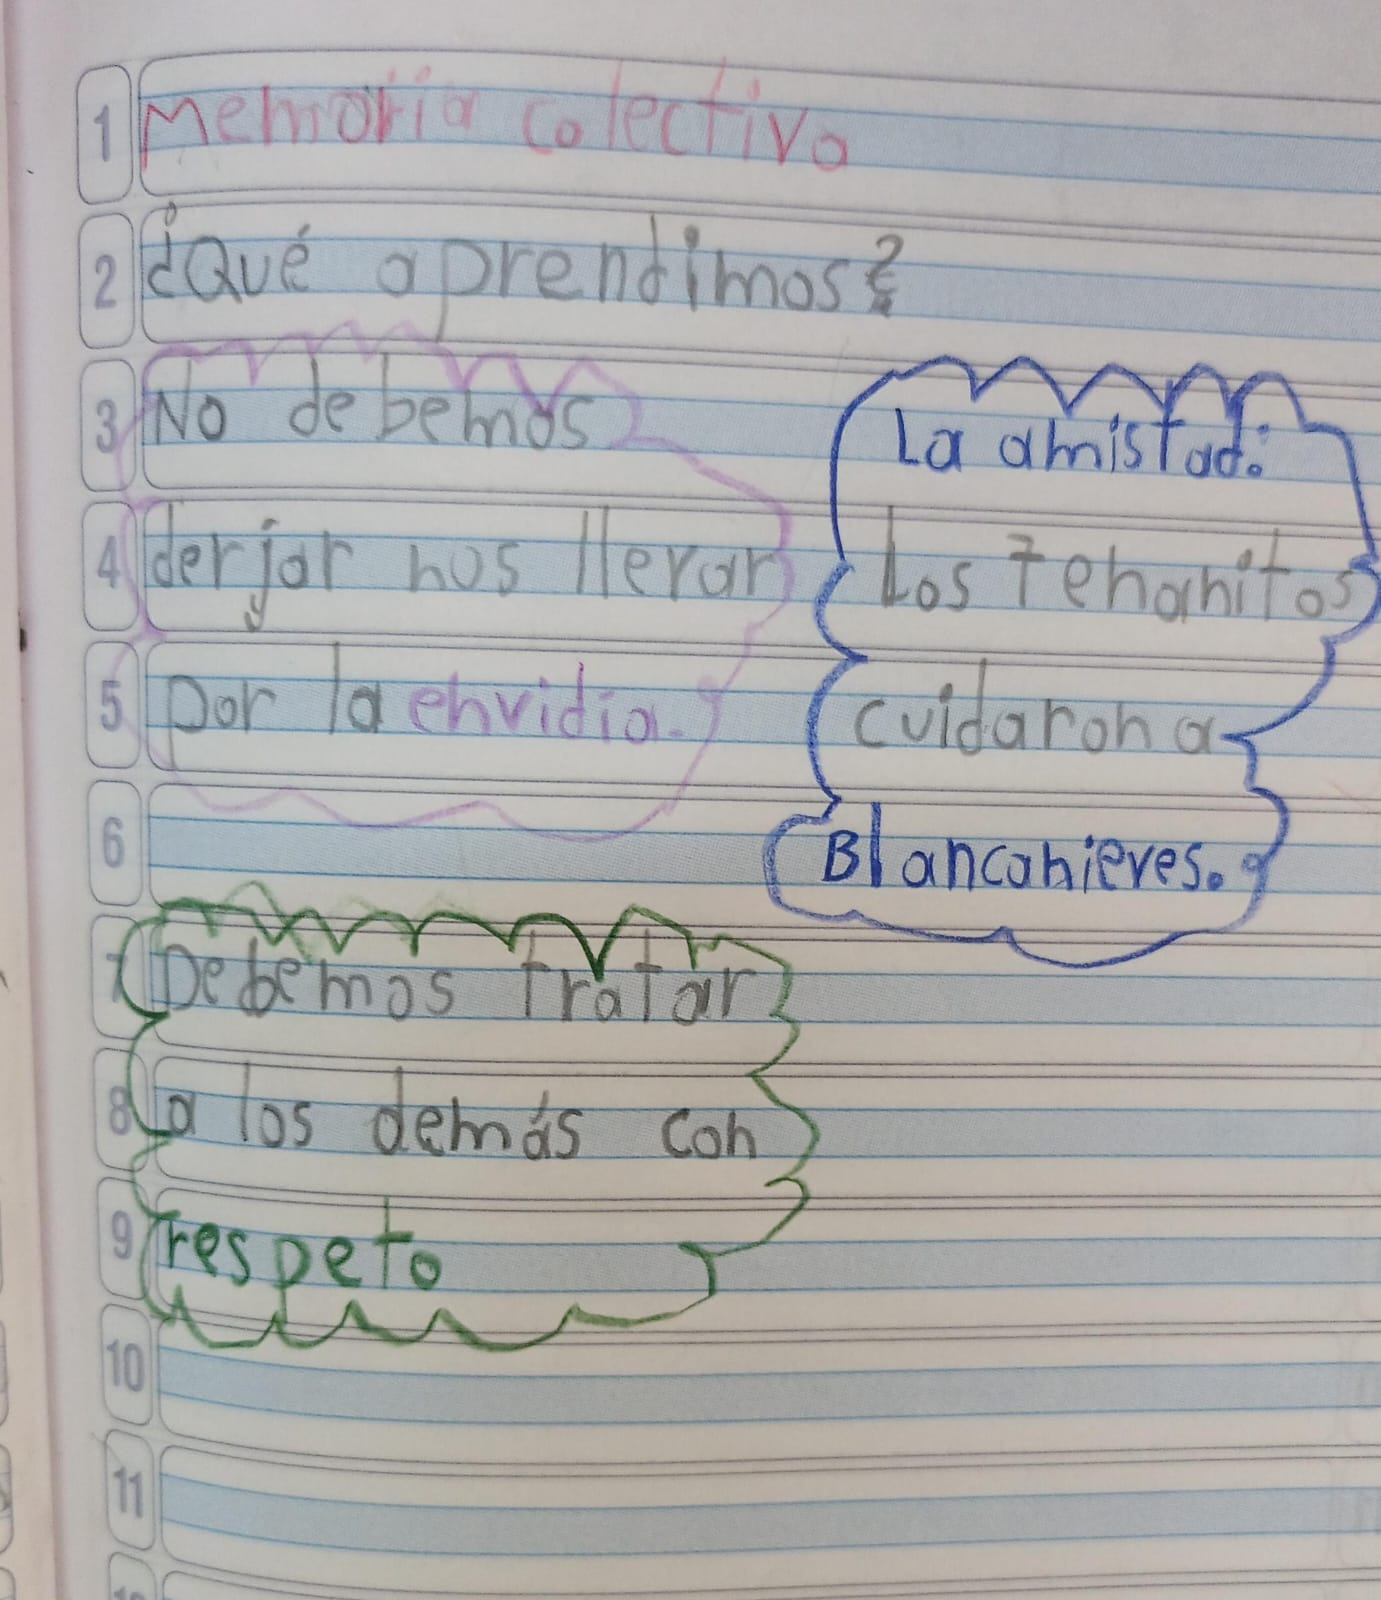 1 Memoria colectiva
2 ¿Qué aprendimos?
3 No debemos
4 derjar nos llevar
5 por la envidia.
La amistad:
Los 7 enanitos
cuidaron a
Blancanieves.
6
7 Debemos tratar
8 a los demás con
9 respeto
10
11